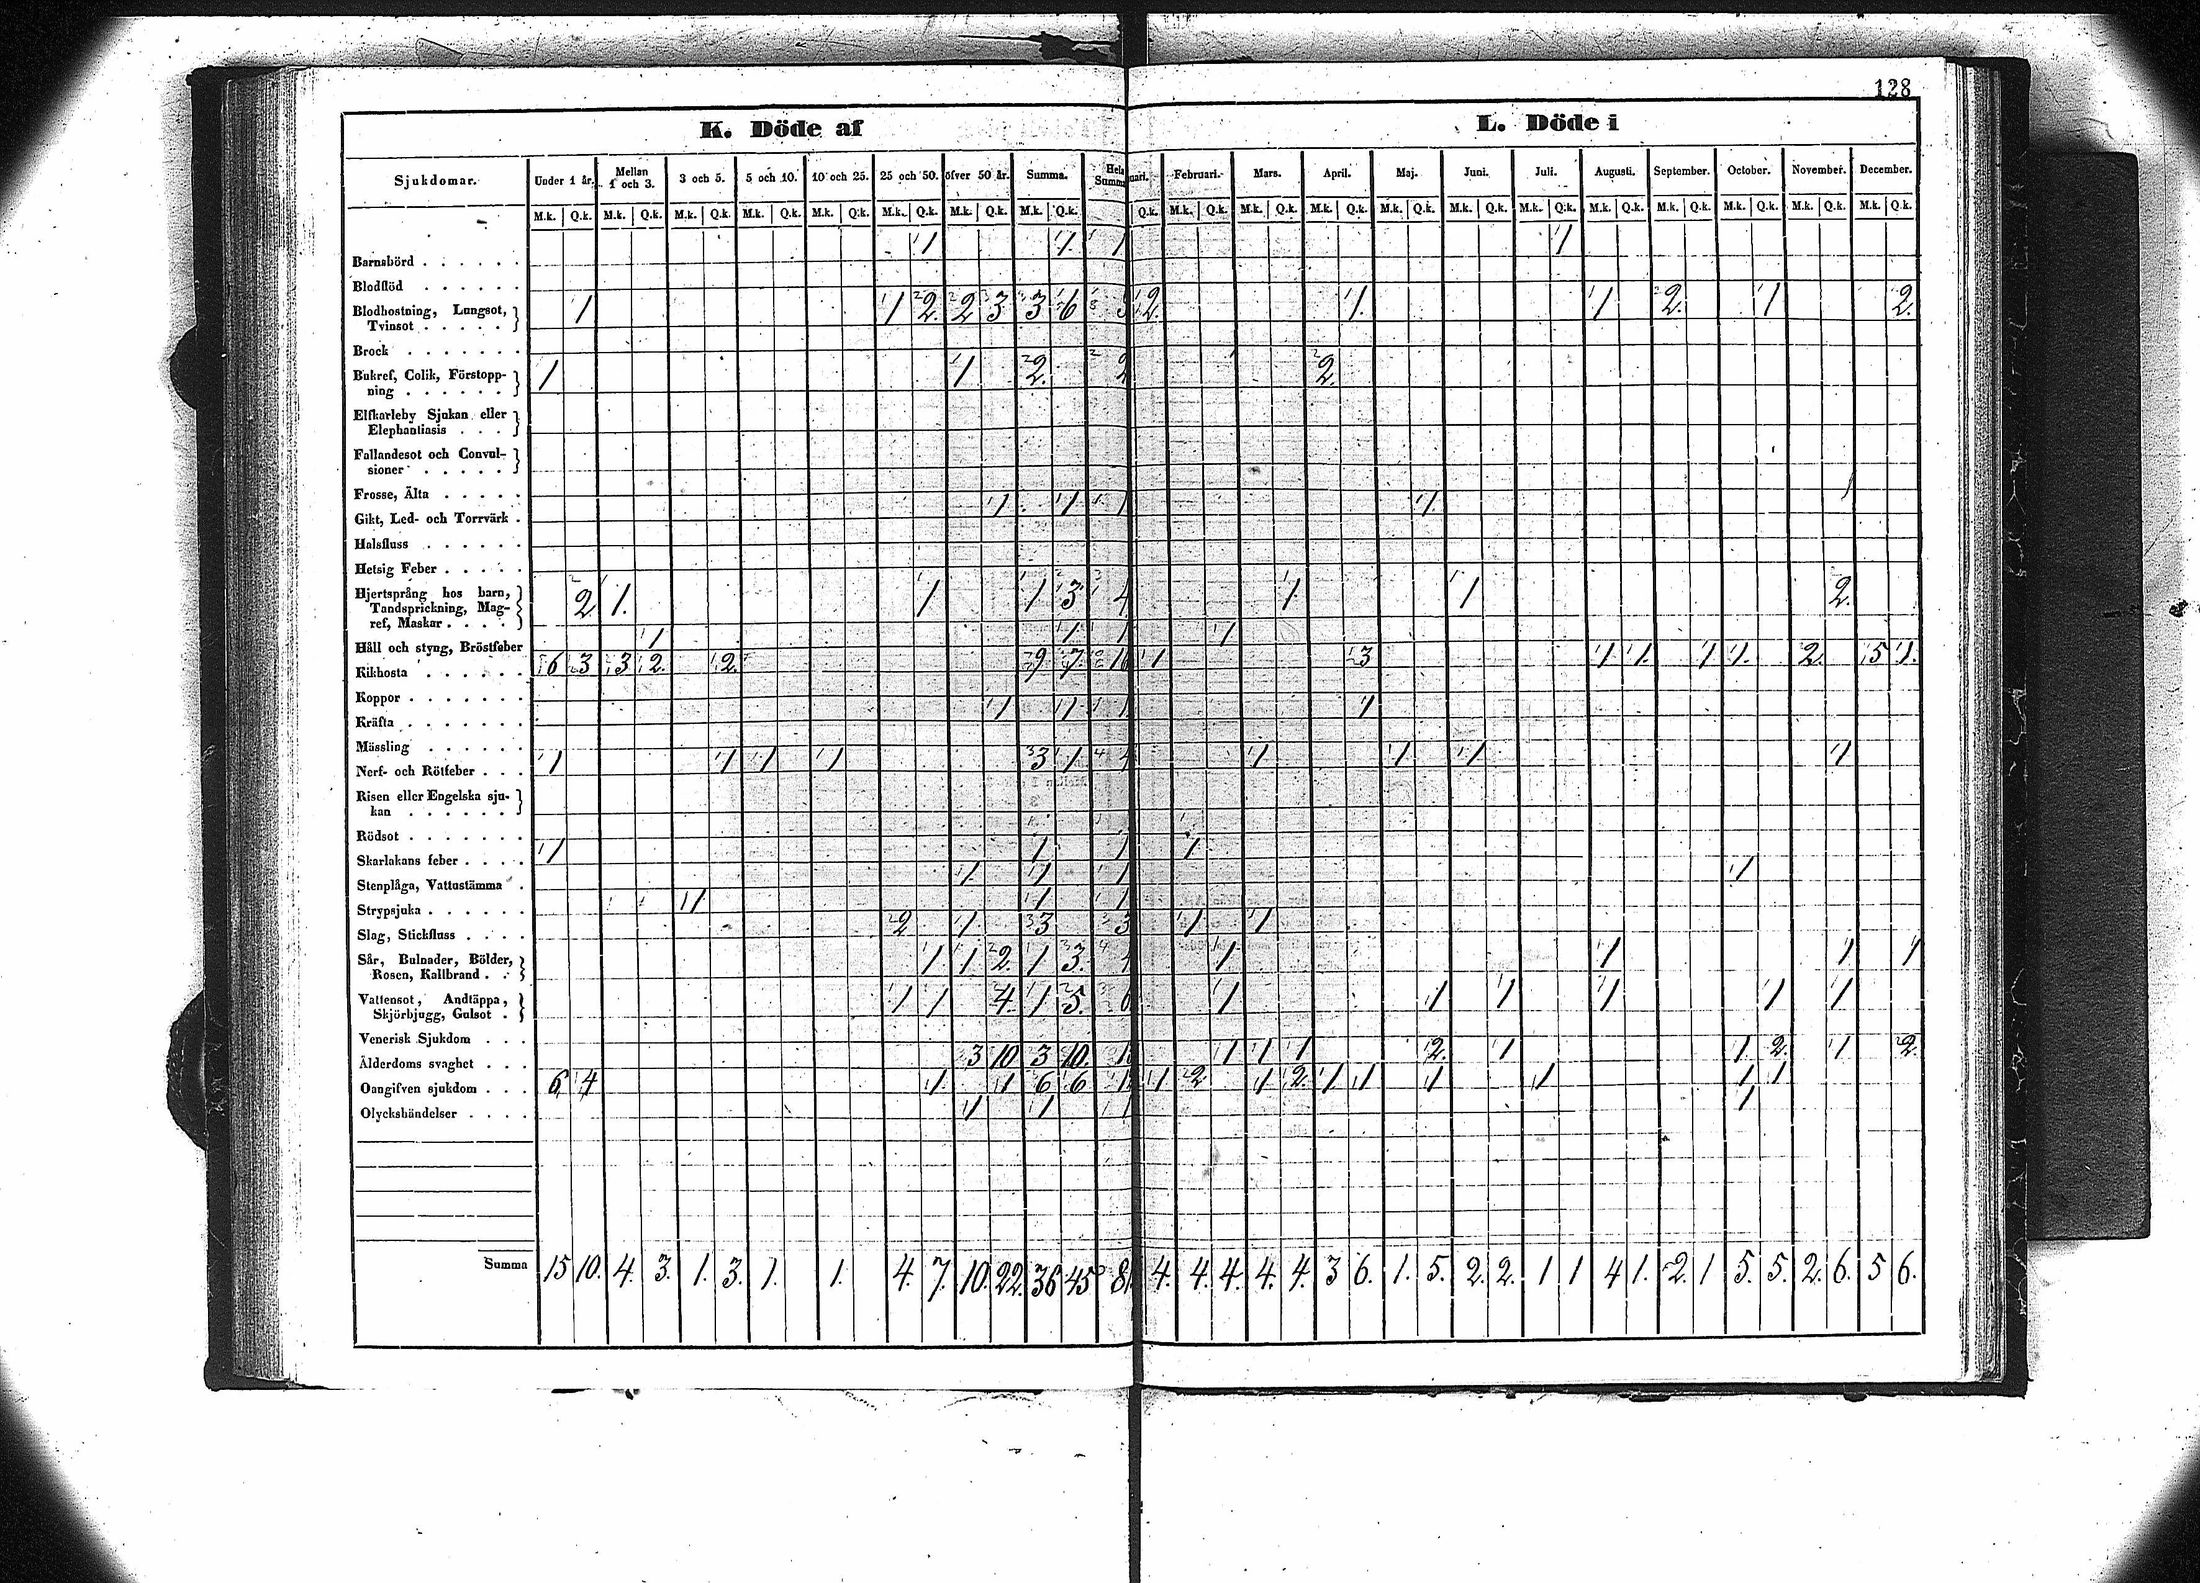 128
K. Döde af
L. Döde i
Sjukdomar. Under 1 år. Mellan 1 och 3. 3 och 5. 5 och 10. 10 och 25. 25 och 50. öfver 50 år. Summa. Hela Summa
uari. Februari. Mars. April. Maj. Juni. Juli. Augusti. September. October. November. December.
M.k. Q.k. M.k. Q.k. M.k. Q.k. M.k. Q.k. M.k. Q.k. M.k. Q.k. M.k. Q.k. M.k. Q.k.
Q.k. M.k. Q.k. M.k. Q.k. M.k. Q.k. M.k. Q.k. M.k. Q.k. M.k. Q.k. M.k. Q.k. M.k. Q.k. M.k. Q.k. M.k. Q.k. M.k. Q.k.
Barnsbörd 1 1 1 1
Blodflöd
Blodhostning, Lungsot,
Tvinsot 1 1 2 2 3 3 6 2 1 1 2 1 2
Brock
Bukref, Colik, Förstopp-
ning 1 1 2 2 2
Elfkarleby Sjukan eller
Elephantiasis
Fallandesot och Convul-
sioner
Frosse, Älta
Gikt, Led- och Torrvärk 1 1 1 1
Halsfluss
Hetsig Feber
Hjertsprång hos barn,
Tandsprickning, Mag-
ref, Maskar 2 1 1 1 3 4 1 1 2
Håll och styng, Bröstfeber 1 1 1 1
Kikhosta 6 3 3 2 2 9 7 16 1 3 1 1 1 1 2 5 1
Koppor
Kräfta 1 1 1 1
Mässling
Nerf- och Rötfeber 1 1 1 1 3 1 4 1 1 1 1
Risen eller Engelska sju-
kan
Rödsot
Skarlakans feber 1 1 1 1
Stenplåga, Vattustämma 1 1 1 1
Strypsjuka 1 1 1
Slag, Stickfluss 2 1 3 3 1 1
Sår, Bulnader, Bölder,
Rosen, Kallbrand 1 1 2 1 3 4 1 1 1 1
Vattensot, Andtäppa,
Skjörbjugg, Gulsot 1 1 4 1 5 6 1 1 1 1 1 1
Venerisk Sjukdom
Ålderdoms svaghet 3 10 3 10 1 1 1 2 1 1 2 1 2
Oangifven sjukdom 6 4 1 1 6 6 1 2 1 2 1 1 1 1 1 1
Olyckshändelser 1 1 1 1
Summa 15 10. 4. 3. 1. 3. 1. 1. 4. 7. 10. 22. 36 45 81 4. 4. 4. 4. 4. 3 6. 1. 5. 2. 2. 1 1 4 1. 2. 1 5. 5. 2. 6. 5 6.